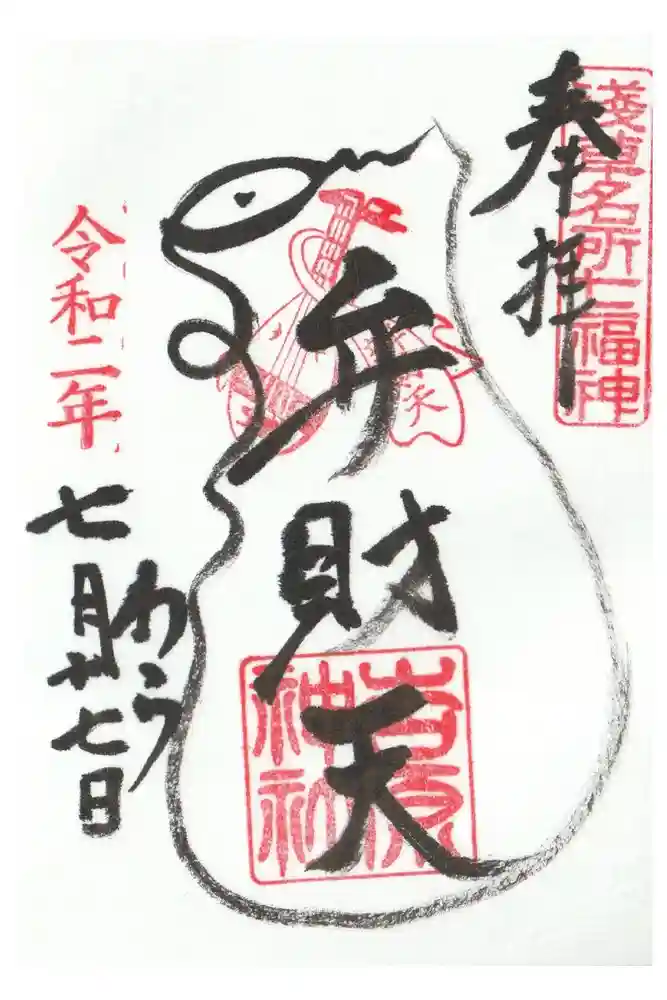 淺草名所七福神
奉拝
弁財天
吉原神社
令和二年
七月廿七日